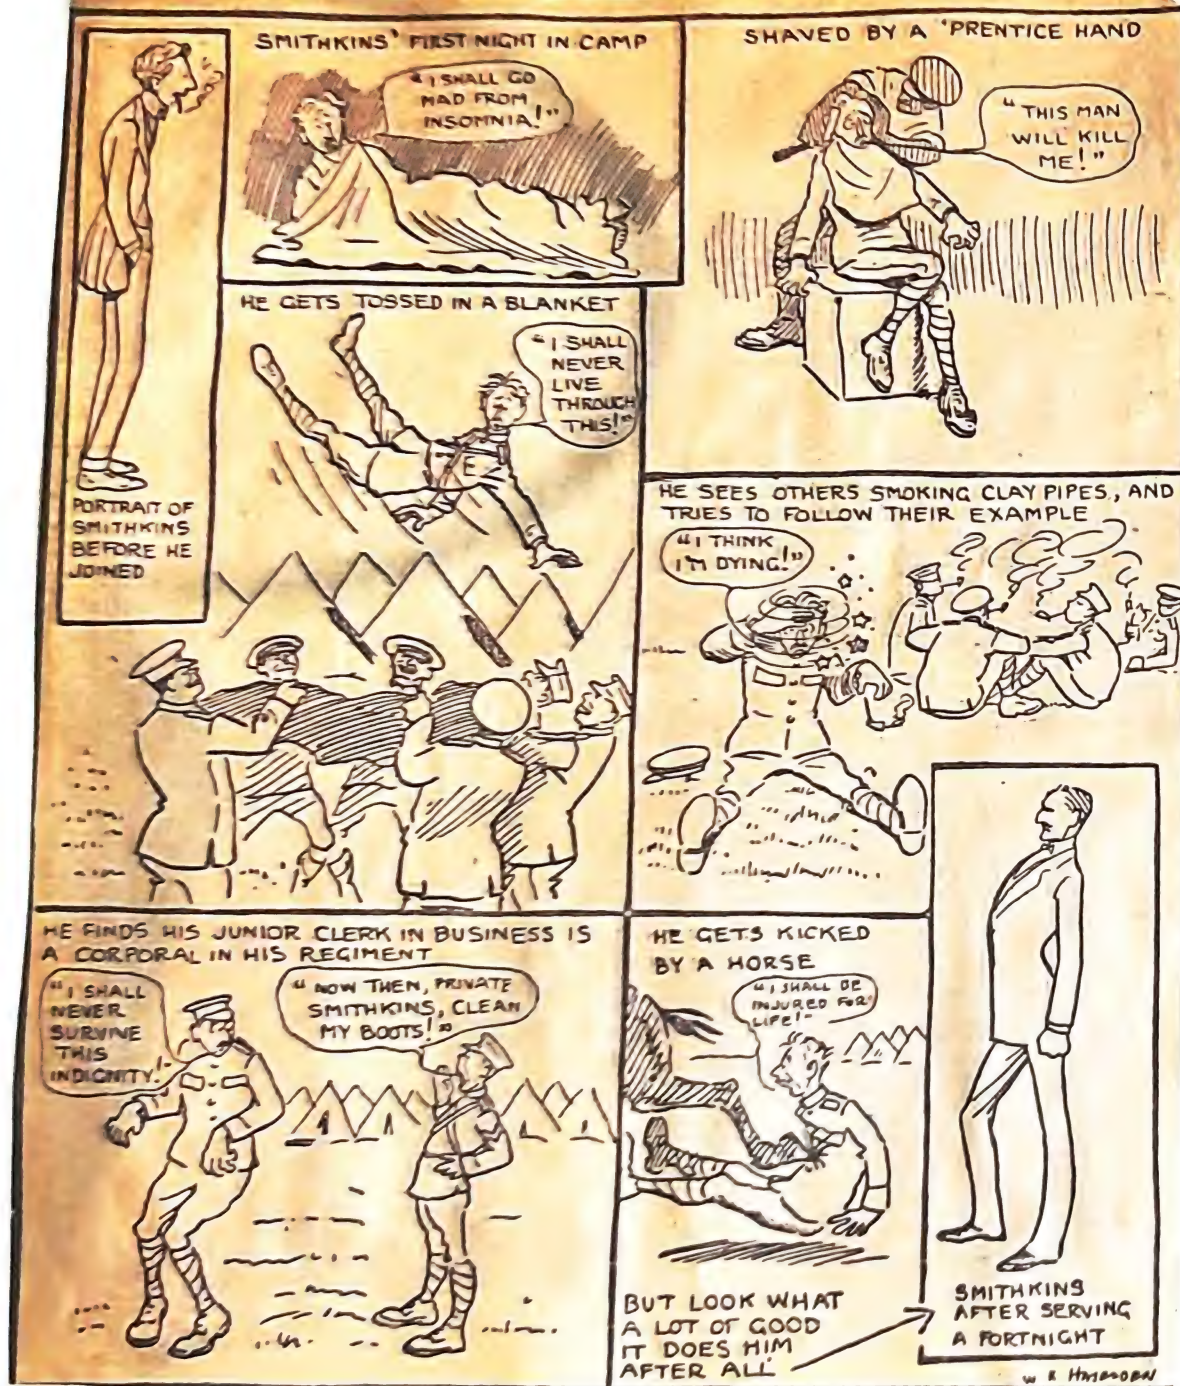 PORTRAIT OF
SMITHKINS
BEFORE HE
JOINED
SMITHKINS' FIRST NIGHT IN CAMP
"I SHALL GO
MAD FROM
INSOMNIA!"
SHAVED BY A 'PRENTICE HAND
"THIS MAN
WILL KILL
ME!"
HE GETS TOSSED IN A BLANKET
"I SHALL
NEVER
LIVE
THROUGH
THIS!"
HE SEES OTHERS SMOKING CLAY PIPES, AND
TRIES TO FOLLOW THEIR EXAMPLE
"I THINK
I'M DYING!"
HE FINDS HIS JUNIOR CLERK IN BUSINESS IS
A CORPORAL IN HIS REGIMENT
"I SHALL
NEVER
SURVIVE
THIS
INDIGNITY!
"NOW THEN, PRIVATE
SMITHKINS, CLEAN
MY BOOTS!"
HE GETS KICKED
BY A HORSE
"I SHALL BE
INJURED FOR
LIFE!"
BUT LOOK WHAT
A LOT OF GOOD
IT DOES HIM
AFTER ALL
SMITHKINS
AFTER SERVING
A FORTNIGHT
W K